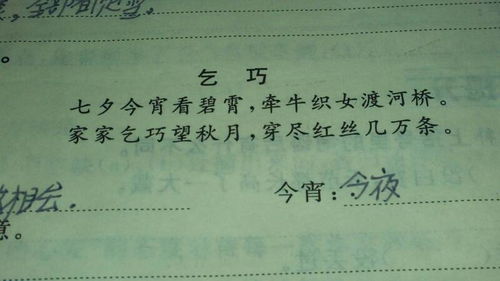 。
乞 巧
七夕今宵看碧霄，牵牛织女渡河桥。
家家乞巧望秋月，穿尽红丝几万条。
相会. 今宵：今夜
意。